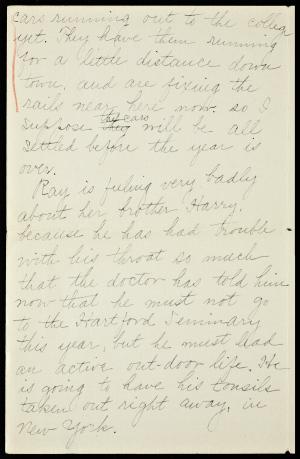 cars running out to the college
yet. They have them running
for a little distance down
town, and are fixing the
rails near here now. so I
the cars
suppose they will be all
settled before the year is
over.
Ray is feeling very badly
about her brother Harry.
because he has had trouble
with his throat so much
that the doctor has told him
now that he must not go
to the Hartford Seminary
this year, but he must lead
an active out-door life. He
is going to have his tonsils
taken out right away, in
New York.